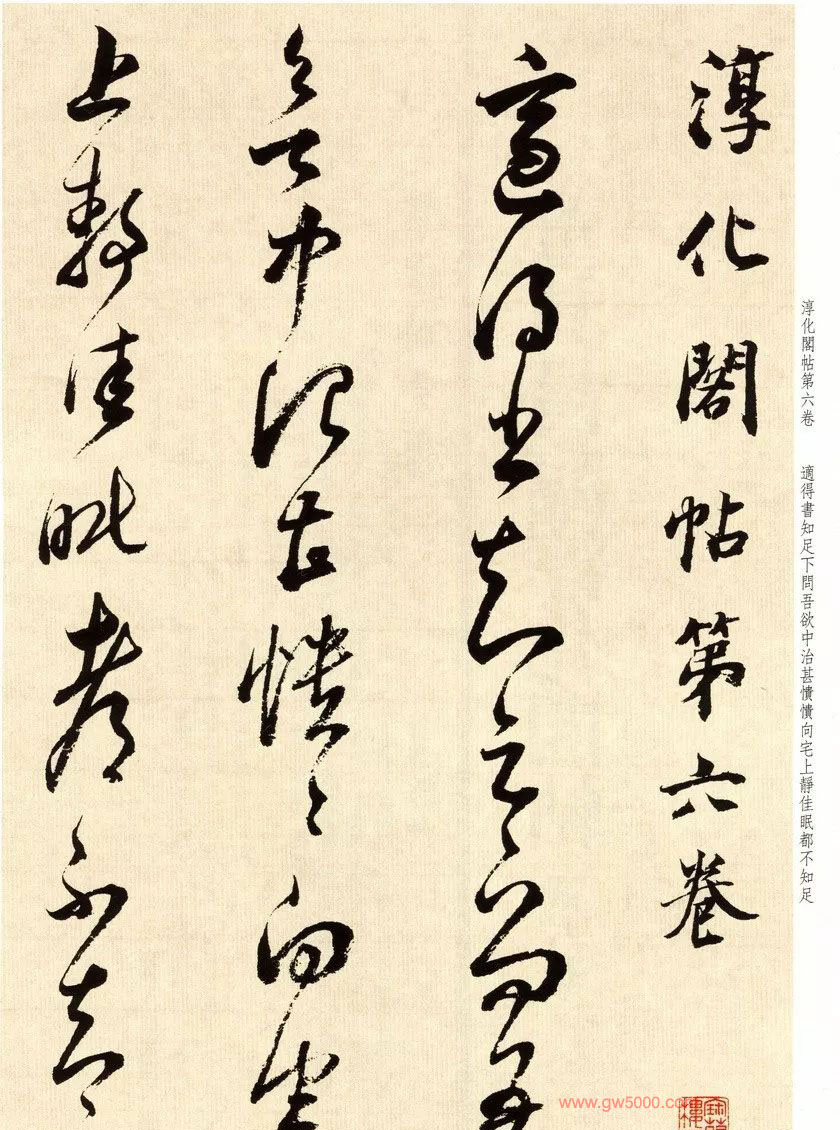 淳化閣帖第六卷
適得書知足下問吾
欲中冷甚憒〻向宅
上靜佳眠都不知足
淳化閣帖第六卷 適得書知足下問吾欲中治甚憒憒向宅上靜佳眠都不知足
www.gw5000.com